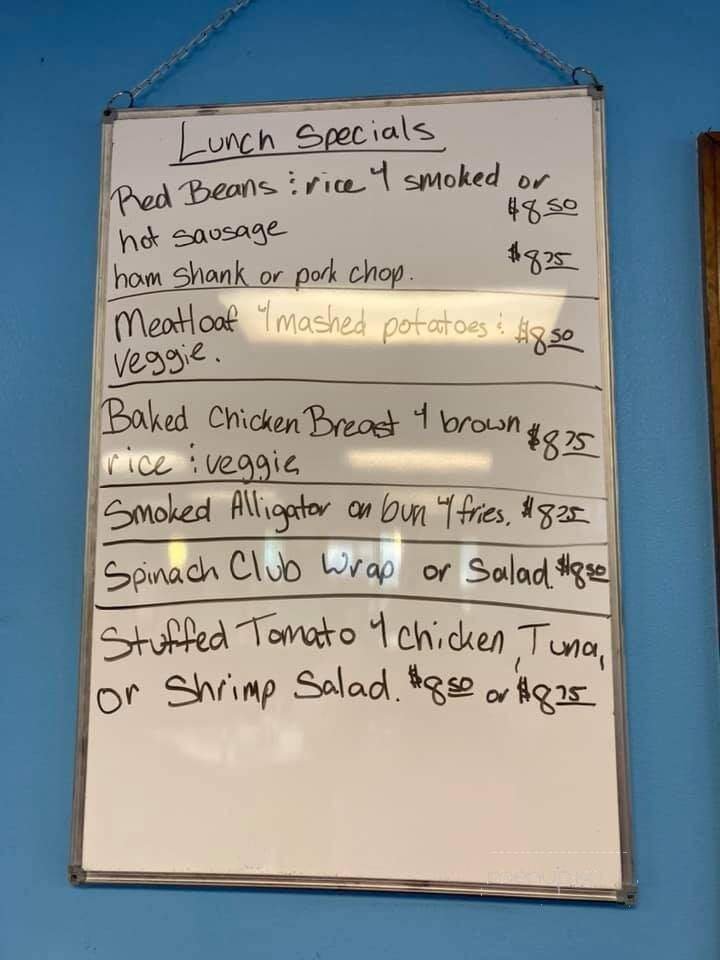 Lunch Specials
Red Beans & rice w/ smoked or
$8.50
hot sausage
ham shank or pork chop. $8.75
Meatloaf w/ mashed potatoes & $8.50
veggie.
Baked Chicken Breast w/ brown $8.75
rice & veggie
Smoked Alligator on bun w/ fries. $8.75
Spinach Club Wrap or Salad. $8.50
Stuffed Tomato w/ chicken, Tuna,
or Shrimp Salad. $8.50 or $8.75